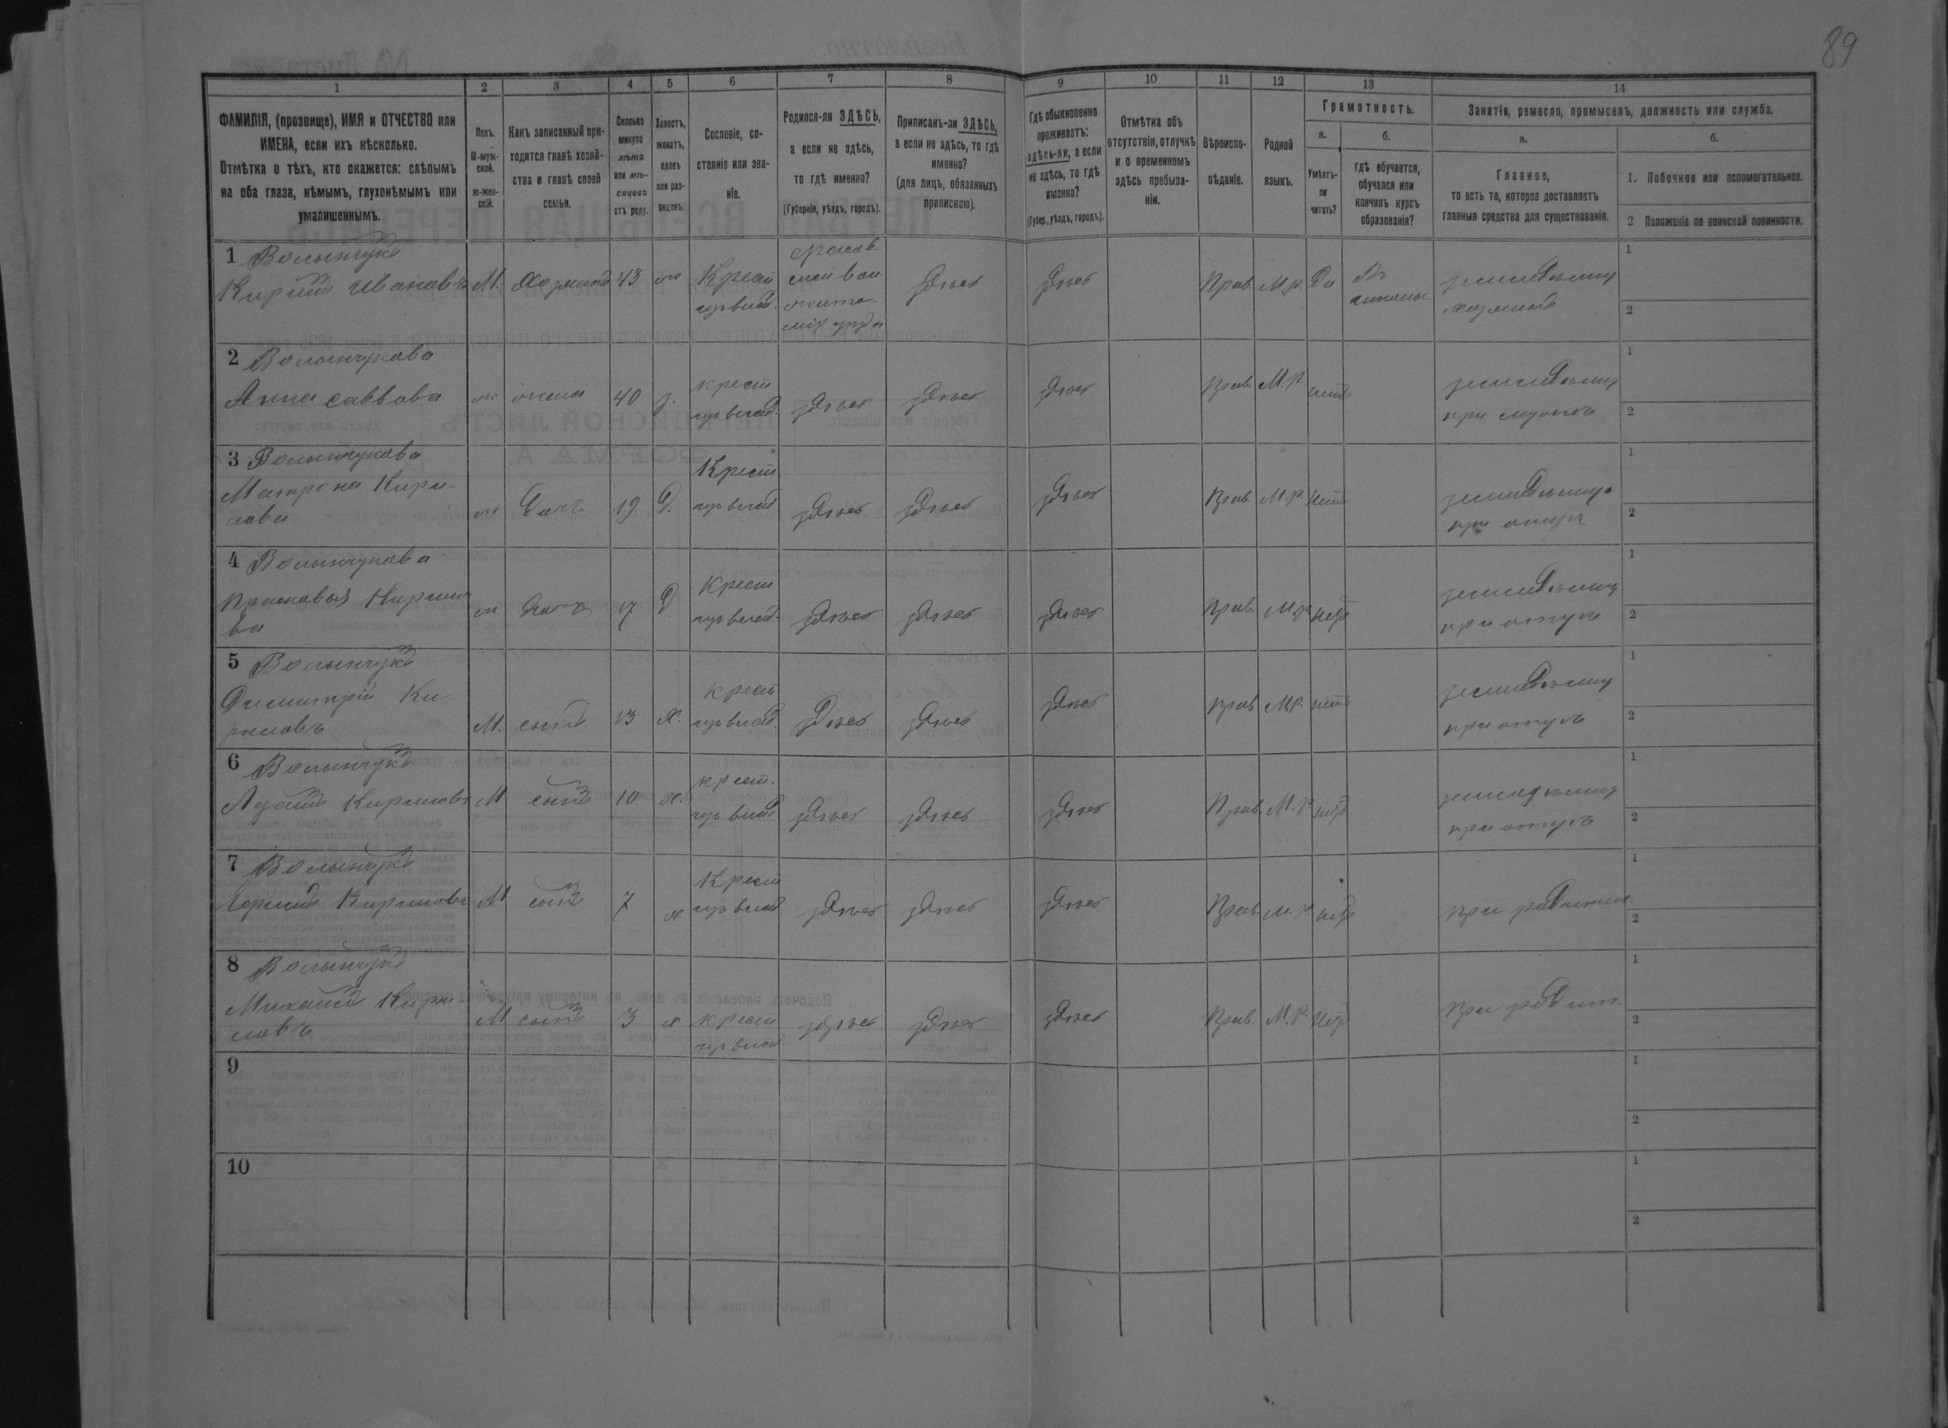 89
1 2 3 4 5 6 7 8 9 10 11 12 13 14
ФАМИЛІЯ, (прозвище), ИМЯ и ОТЧЕСТВО или
ИМЕНА, если ихъ нѣсколько.
Отмѣтка о тѣхъ, кто окажется: слѣпымъ
на оба глаза, нѣмымъ, глухонѣмымъ или
умалишеннымъ.
Полъ.
М-муж-
ской.
ж-жен-
скій.
Какъ записанный при-
ходится главѣ хозяй-
ства и главѣ своей
семьи.
Сколько
минуло
лѣтъ
или мѣ-
сяцевъ
отъ роду.
Холостъ,
женатъ,
вдовъ
или раз-
веденъ.
Сословіе, со-
стояніе или зва-
ніе.
Родился-ли ЗДѢСЬ,
а если не здѣсь,
то гдѣ именно?
(Губернія, уѣздъ, городъ).
Приписанъ-ли ЗДѢСЬ,
а если не здѣсь, то гдѣ
именно?
(для лицъ, обязанныхъ
припискою).
Гдѣ обыкновенно
проживаетъ:
здѣсь-ли, а если
не здѣсь, то гдѣ
именно?
(Губер., уѣздъ, городъ).
Отмѣтка объ
отсутствіи, отлучкѣ
и о временномъ
здѣсь пребыва-
ніи.
Вѣроиспо-
вѣданіе.
Родной
языкъ.
Грамотность.
а.
Умѣетъ-
ли
читать?
б.
Гдѣ обучается,
обучался или
кончилъ курсъ
образованія?
Занятіе, ремесло, промыселъ, должность или служба.
а.
Главное,
то есть то, которое доставляетъ
главныя средства для существованія.
б.
1. Побочное или вспомогательное.
2 Положеніе по воинской повинности.
1 Волынчукъ
Кирилъ Ивановъ М. хозяинъ 43 ж Крест здѣсь здѣсь Прав. М.р. Да земледѣлец
хозяинъ
1
2
2 Волынчукова
Анна Саввова ж жена 40 крест здѣсь здѣсь здѣсь Прав. М.р. нетъ земледѣлец
при мужѣ
1
2
3 Волынчукова
Матрона Кири-
лова ж дочь 19 Д. Крест здѣсь здѣсь здѣсь Прав. М.р. нетъ земледѣлец
при отцѣ
1
2
4 Волынчукова
Прасковья Кирило
ва ж дочь 17 Д Крест здѣсь здѣсь здѣсь Прав. М.р. нетъ земледѣлец
при отцѣ
1
2
5 Волынчукъ
Димитрій Ки-
риловъ М. сынъ 13 х. крест здѣсь здѣсь здѣсь Прав М.р. нетъ земледѣлец
при отцѣ
1
2
6 Волынчукъ
Адамъ Кириловъ М сынъ 10 х. крест. здѣсь здѣсь здѣсь Прав. М.р. нетъ земледѣлец
при отцѣ
1
2
7 Волынчукъ
Кириловъ М сынъ 7 х Крест здѣсь здѣсь здѣсь Прав. М.р. нетъ при родител
1
2
8 Волынчукъ
Михаилъ Кири
ловъ М сынъ 3 х крест здѣсь здѣсь здѣсь Прав. М.р. нетъ при родит.
1
2
9
1
2
10
1
2